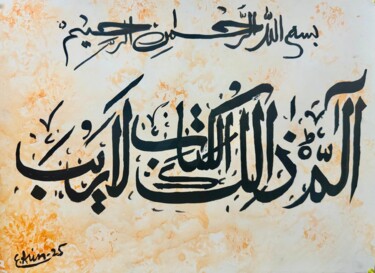 بسم الله الرحمن الرحيم
الٓمّ ذٰلك الكتاب لا ريب